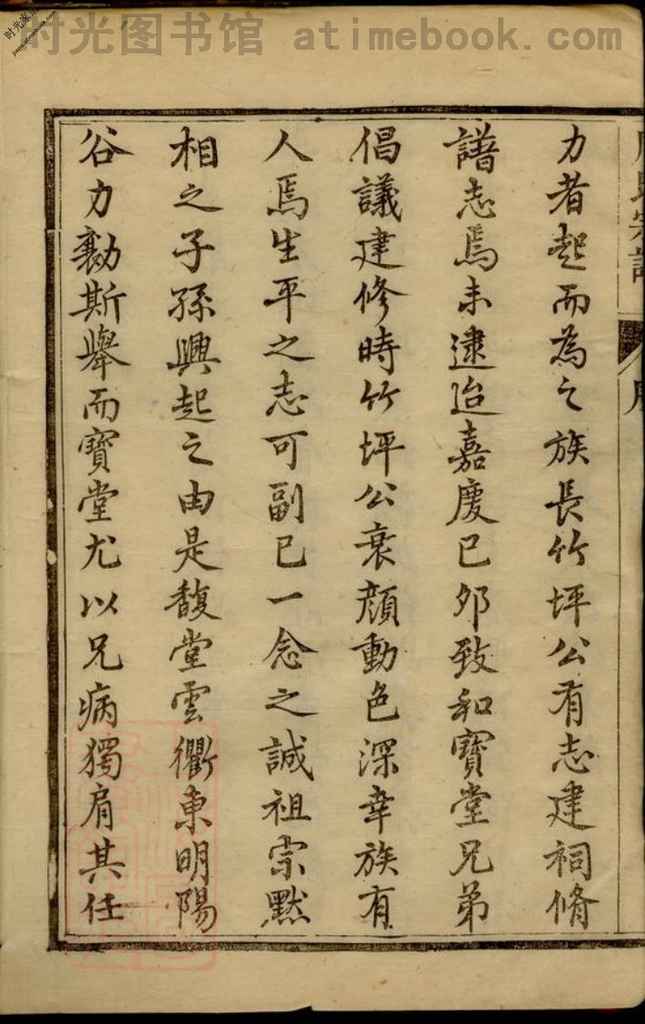 时光图书馆 atimebook.com
力者起而為之族長竹坪公有志建祠脩
譜志焉未逮迨嘉慶已夘致和寶堂兄弟
倡議建修時竹坪公衰顔動色深幸族有
人焉生平之志可副已一念之誠祖宗默
相之子孫興起之由是馥堂雲衢東明陽
谷力勷斯舉而寶堂尤以兄病獨肩其任